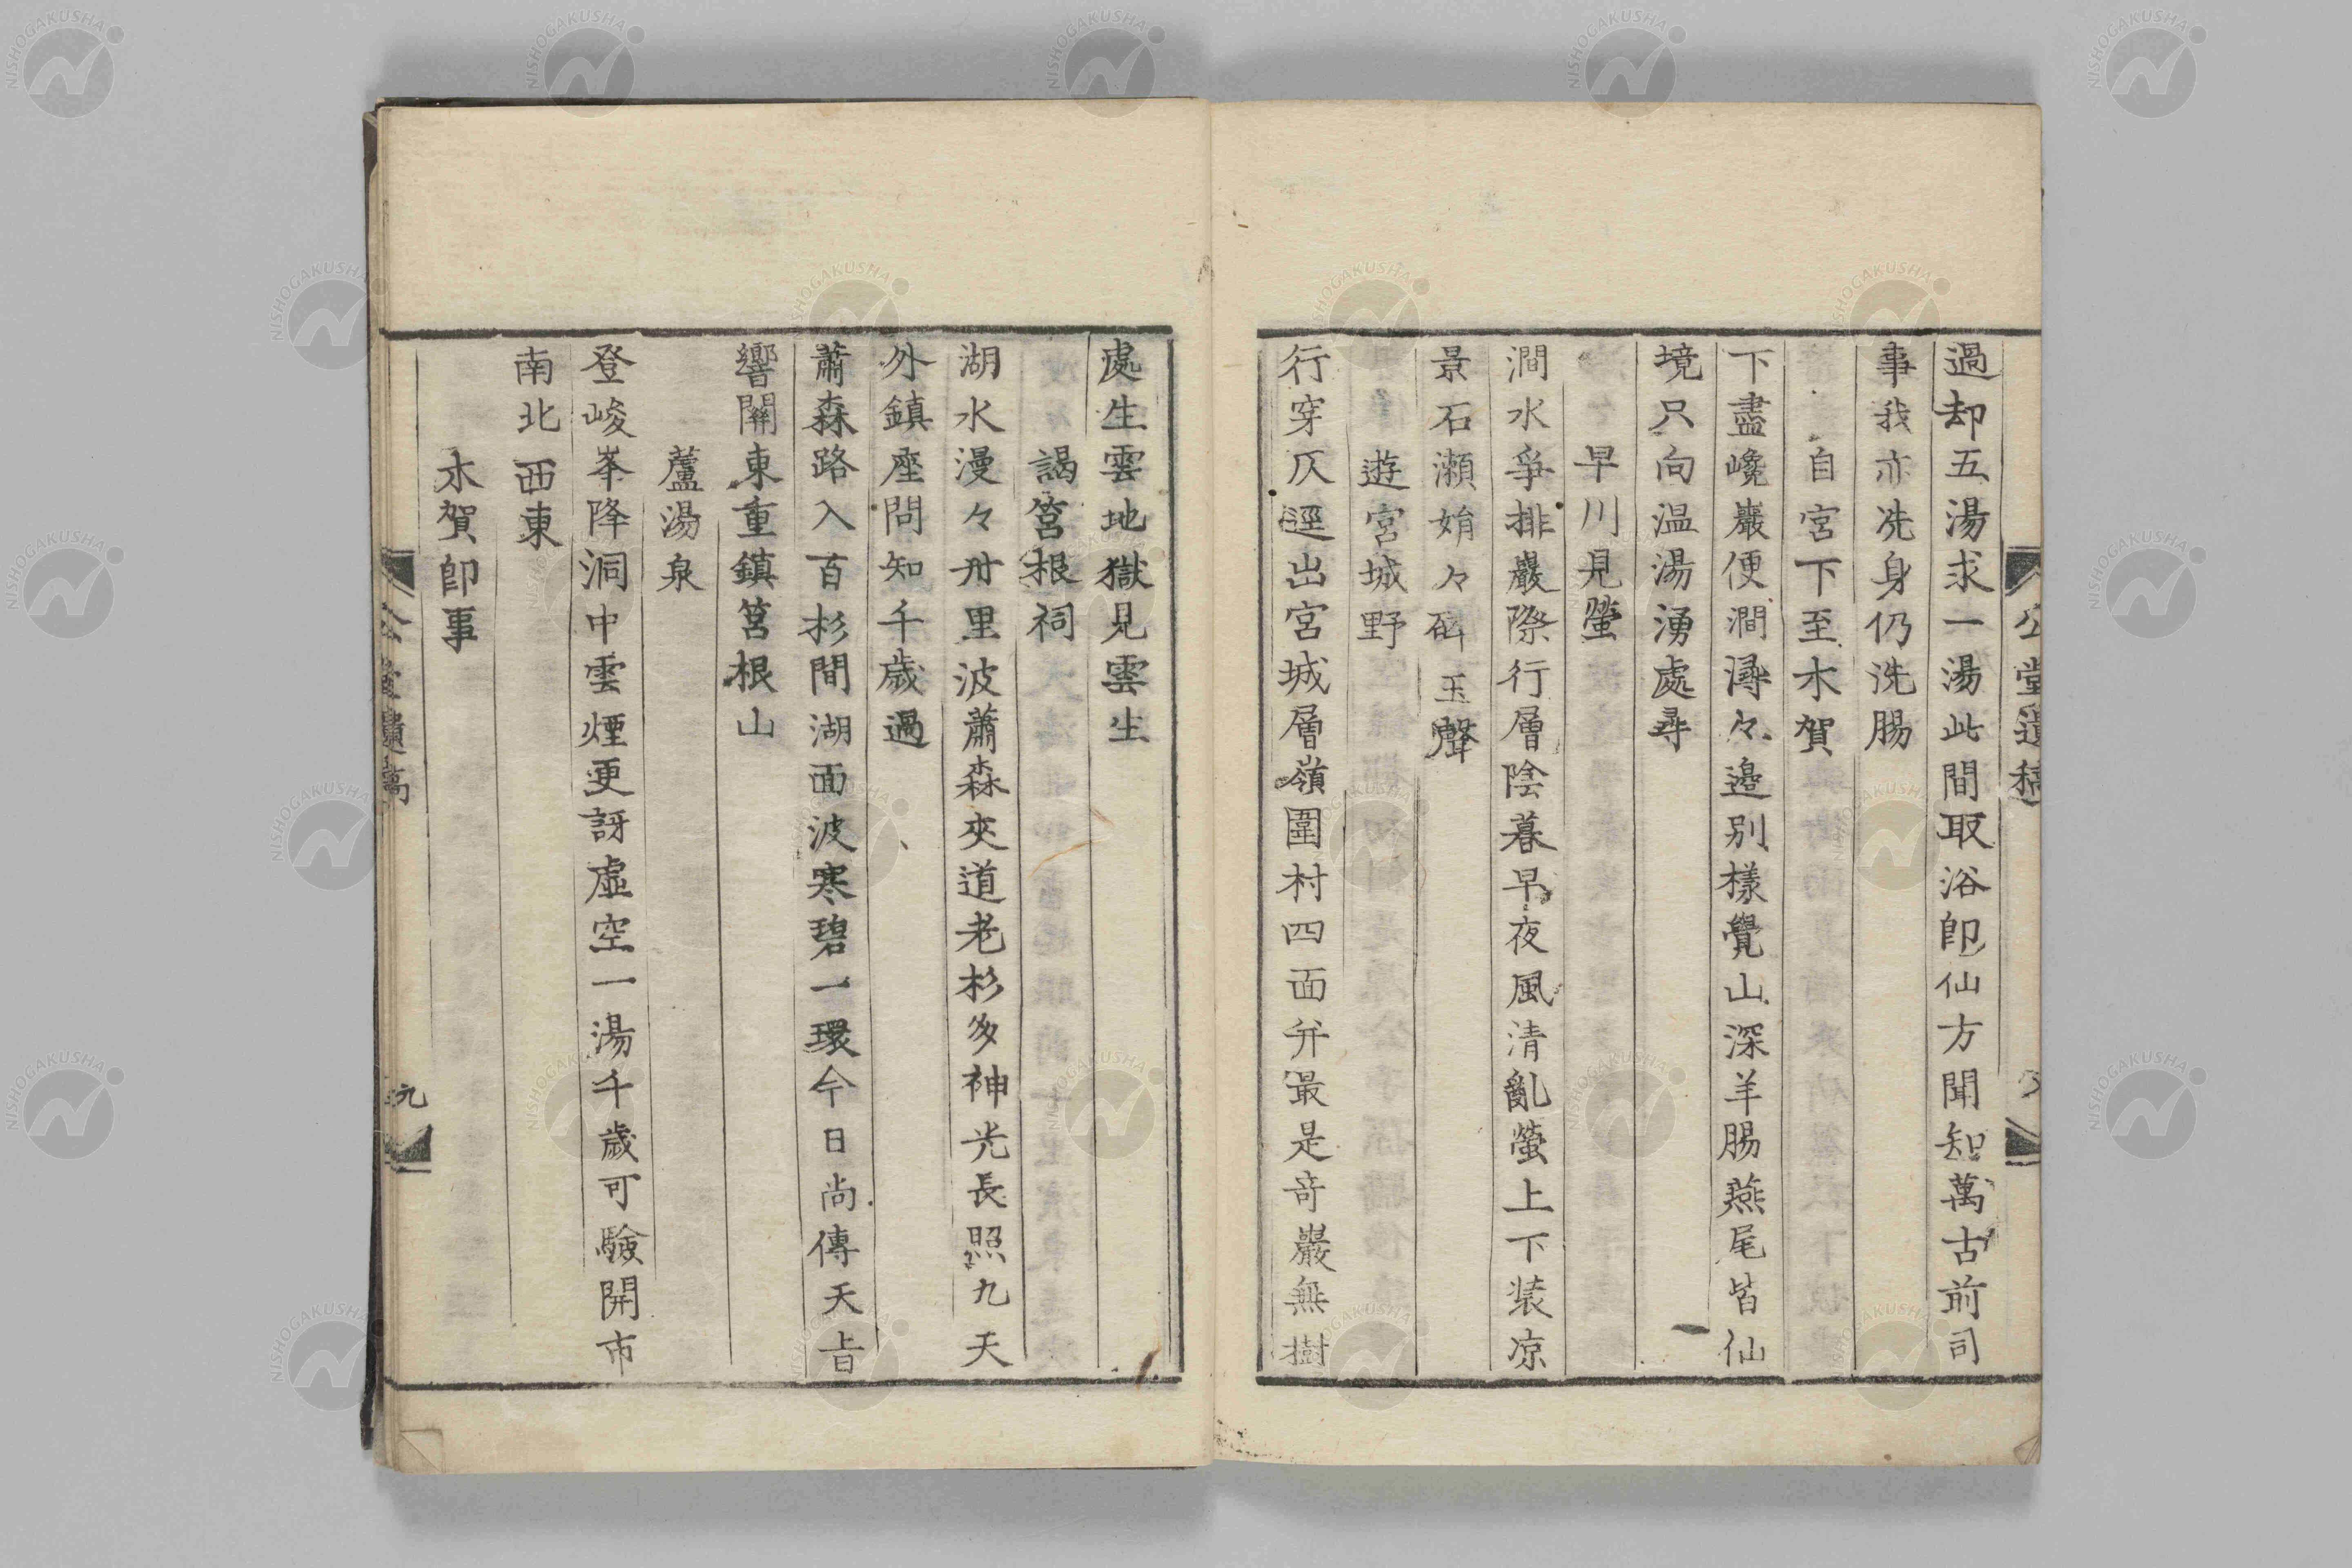 過却五湯求一湯此間取浴卽仙方聞知萬古前司
事我亦洗身仍洗腸
自宮下至木賀
下盡巉巖便澗潯々邊別樣覺山深羊腸燕尾皆仙
境只向温湯湧處尋
早川見螢
澗水爭排巖際行層陰暮早夜風清亂螢上下装凉
景石瀬娋々砡玉聲
遊宮城野
行穿仄逕出宮城層嶺圍村四面幷最是竒巖無樹
處生雲地獄見雲生
謁筥根祠
湖水漫々卅里波蕭森夾道老杉多神光長照九天
外鎮座問知千歳過
蕭森路入百杉間湖面波寒碧一環今日尚傳天㫖
響關東重鎮筥根山
蘆湯泉
登峻峯降洞中雲煙更訝虛空一湯千歲可驗開市
南北西東
木賀卽事
公堂遺稿
九
NISHOGAKUSHA